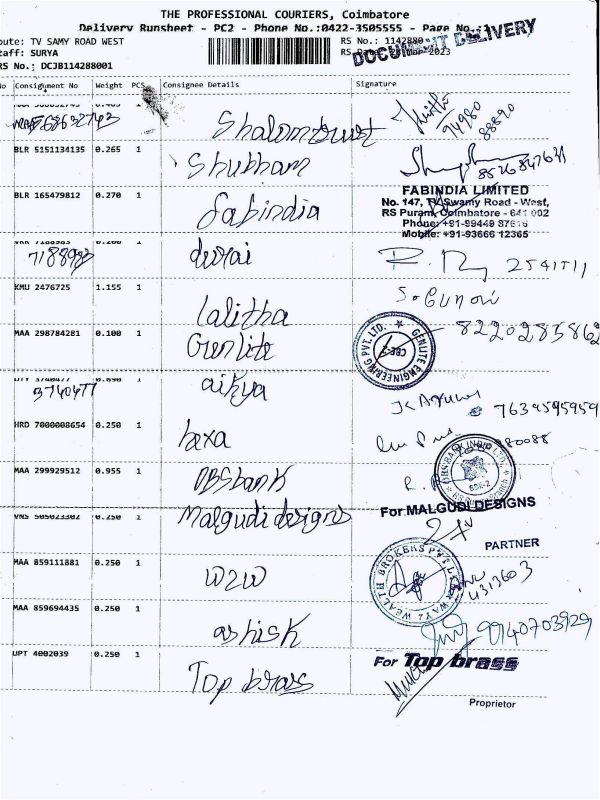 THE PROFESSIONAL COURIERS, Coimbatore
Delivery Runsheet - PC2 - Phone No.:0422-3505555 - Page No.:1
oute: TV SAMY ROAD WEST
RS No.: 1142880
DOCUMENT DELIVERY
taff: SURYA
RS No.: DCJB114288001
No Consignment No Weight PCS Consignee Details Signature
568632743 Shalom trust 94980 88890
BLR 5151134135 0.265 1 Shubham 8526847631
BLR 165479812 0.270 1 Fabindia
FABINDIA LIMITED
No. 147, TV Swamy Road - West,
RS Puram, Coimbatore - 641 002
Phone: +91-99449 87616
Mobile: +91-93666 12365
7188983 durai 2541511
KMU 2476725 1.155 1 Lalitha
MAA 298784281 0.100 1 Genlite 8220285862
GENLITE ENGINEERING PVT. LTD.
CBE-2
3740477 aikya 7639595959
HRD 7000008654 0.250 1 hexa
MAA 299929512 0.955 1 DBS bank
VNS 505023302 0.250 1 Malgudi designs
For MALGUDI DESIGNS
PARTNER
MAA 859111881 0.250 1 W2W
WEALTH BROKERS PVT LTD
4313603
MAA 859694435 0.250 1 ashish 9940703929
UPT 4002039 0.250 1 Top brass
For Top brass
Proprietor